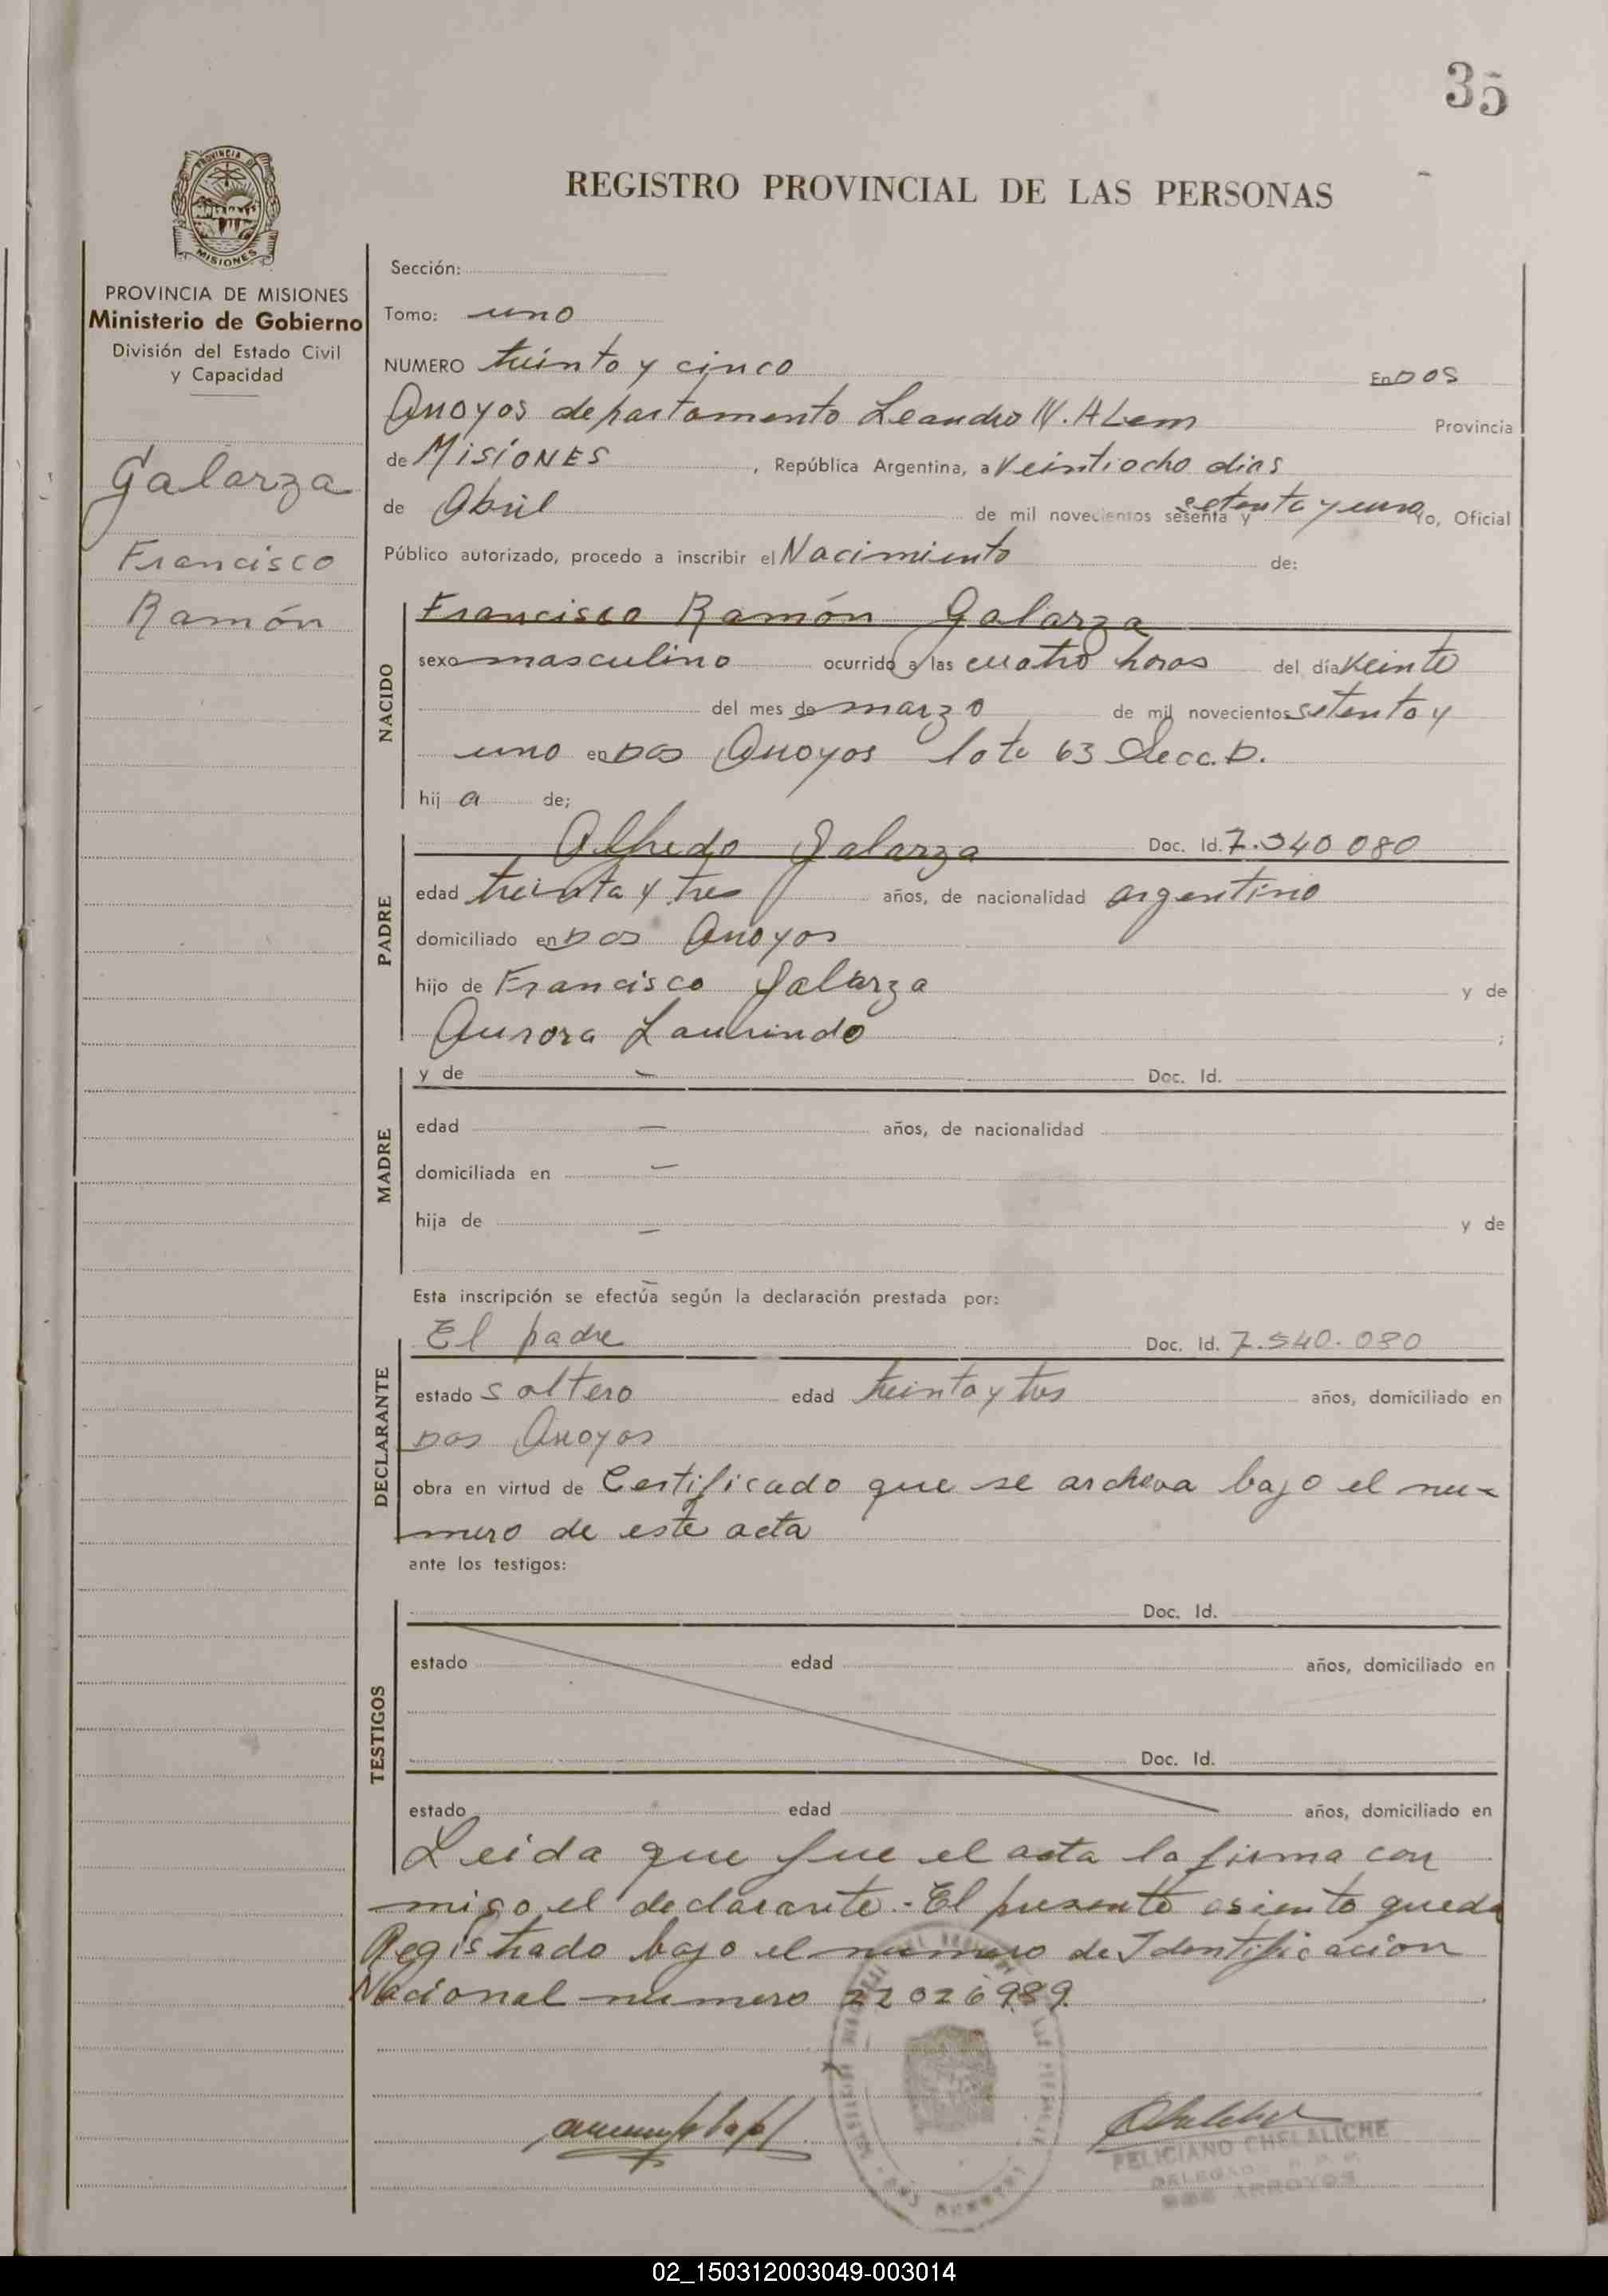 35
PROVINCIA DE
MISIONES
REGISTRO PROVINCIAL DE LAS PERSONAS
PROVINCIA DE MISIONES
Ministerio de Gobierno
División del Estado Civil
y Capacidad
Galarza
Francisco
Ramón
Sección:
Tomo: uno
NUMERO treinta y cinco En DOS
Arroyos departamento Leandro N. ALem Provincia
de MISIONES , República Argentina, a Veintiocho dias
de Abril de mil novecientos sesenta y setenta y uno Yo, Oficial
Público autorizado, procedo a inscribir el Nacimiento de:
NACIDO
Francisco Ramón Galarza
sexo masculino ocurrido a las cuatro horas del día Veinte
del mes de marzo de mil novecientos setenta y
uno en Dos Arroyos lote 63 Secc. D.
hij a de;
PADRE
Alfredo Galarza Doc. Id. 7.540 080
edad treinta y tres años, de nacionalidad argentino
domiciliado en Dos Arroyos
hijo de Francisco Galarza y de
Aurora Laurindo ;
MADRE
y de — Doc. Id.
edad — años, de nacionalidad
domiciliada en —
hija de — y de
Esta inscripción se efectúa según la declaración prestada por:
DECLARANTE
El padre Doc. Id. 7.540.080
estado soltero edad treinta y tres años, domiciliado en
Dos Arroyos
obra en virtud de Certificado que se archiva bajo el nu-
mero de este acta
ante los testigos:
TESTIGOS
Doc. Id.
estado edad años, domiciliado en
Doc. Id.
estado edad años, domiciliado en
Leida que fue el acta la firma con
migo el declarante.- El presente asiento queda
Registrado bajo el numero de Identificacion
Nacional numero 22026989.
FELICIANO CHELALICHE
DELEGADO R. P. P.
DOS ARROYOS
02_150312003049-003014